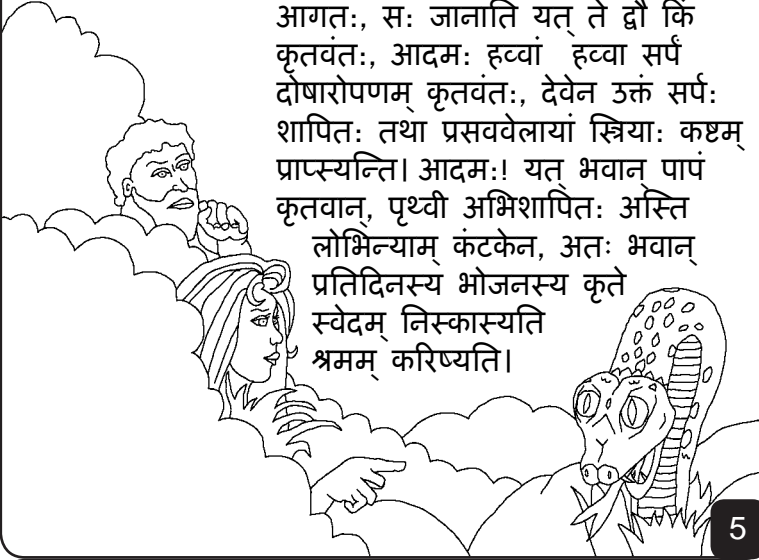 आगत:, स: जानाति यत् ते द्वौ किं
कृतवंत:, आदम: हव्वां हव्वा सर्पं
दोषारोपणम् कृतवंत:, देवेन उक्तं सर्प:
शापित: तथा प्रसववेलायां स्त्रिया: कष्टम्
प्राप्स्यन्ति। आदम:! यत् भवान् पापं
कृतवान्, पृथ्वी अभिशापित: अस्ति
लोभिन्याम् कंटकेन, अतः भवान्
प्रतिदिनस्य भोजनस्य कृते
स्वेदम् निस्कास्यति
श्रमम् करिष्यति।
5